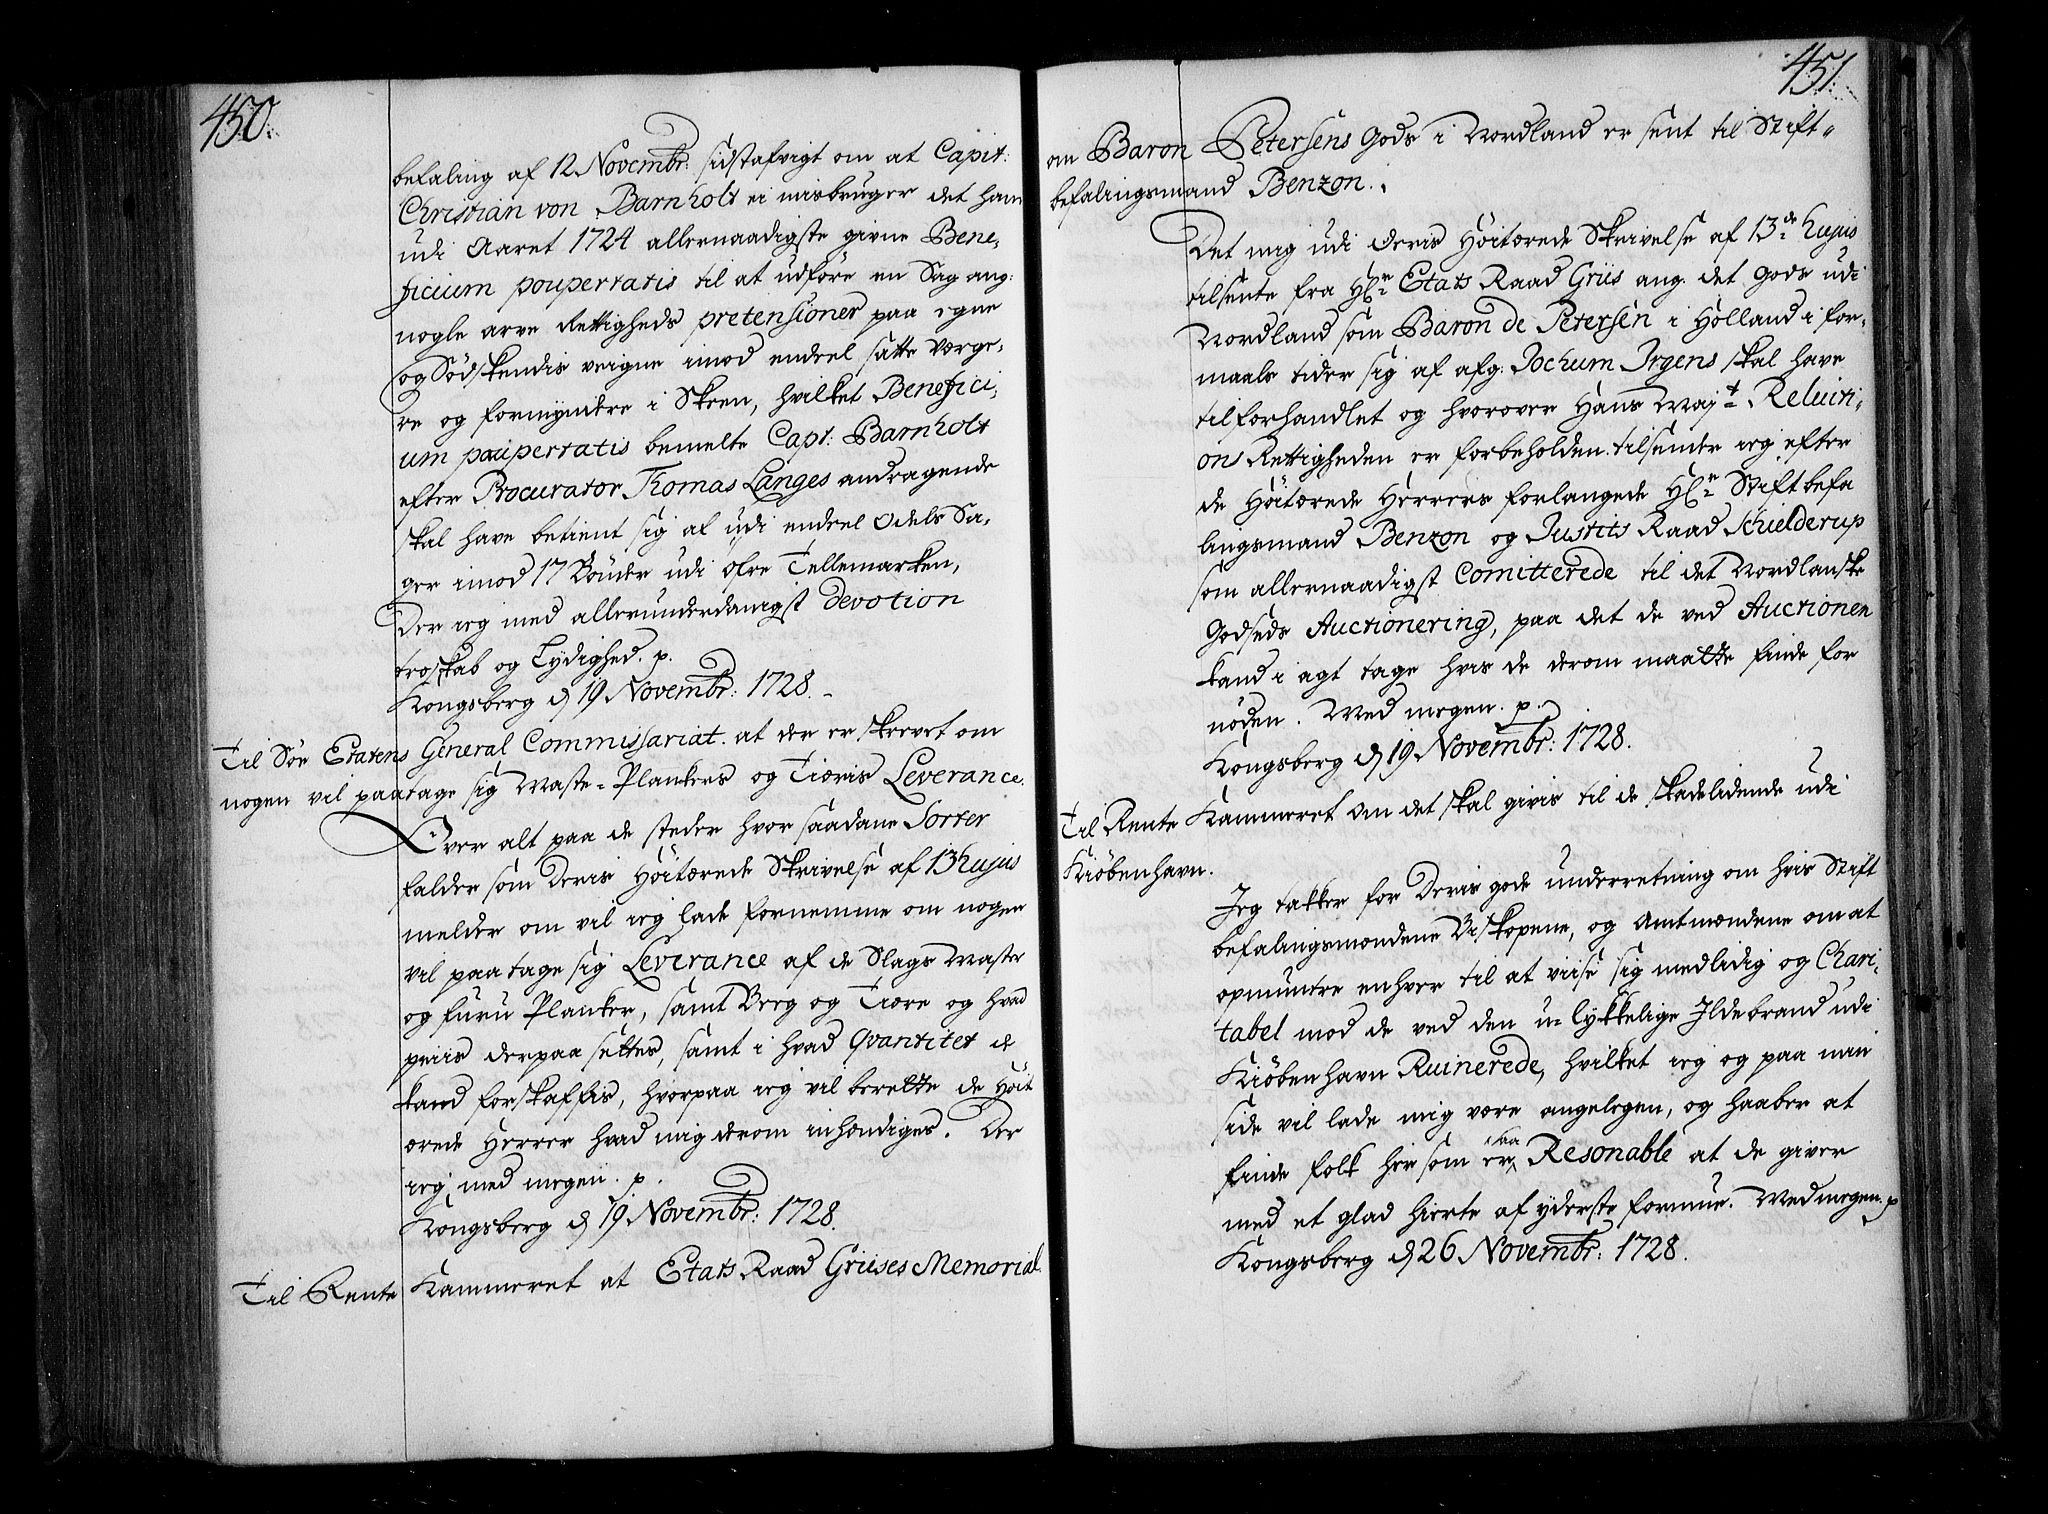 450.
befaling af 12 Novembr: sidstafvigt om at Capit:
Christian von Barnholt ei misbruger det ham
udi Aaret 1724 allernaadigste givne Bene,
ficium poupertatis til at udföre en Sag ang:
nogle arve Rettigheds pretensioner paa egne
og Södskendis veigne imod endeel satte Verge,
re og formyndere i Skeen, hvilket Benefici,
um paupertatis bemelte Capt: Barnholt
efter Procurator Thomas Langes andragende
skal have betient sig af udi endeel Odels Sa,
ger imod 17 Bönder udi Öfre Tellemarken,
Der ieg med allerunderdanigst devotion
troskab og Lydighed. p.
Kongsberg d 19 Novembr: 1728.
Til Söe Etatens General Commissariat. at der er skrevet om
nogen vil paatage sig Maste-Planckers og Tiæris Leverance.
Over alt paa de steder hvor saadane Sorter
falder som Deris Höitærede Skrivelse af 13 hujus
melder om vil ieg lade fornemme om nogen
vil paatage sig Leverance af de Slags Master
og furu Plancker, samt Beeg og Tiære og hvad
priis derpaa settes, samt i hvad Qvantitet de
kand forskaffis, hvorpaa ieg vil berette de Höit
ærede Herrer hvad mig derom inhændiges. Der
ieg med megen. p.
Kongsberg d 19 Novembr: 1728.
Til Rente Kammeret at Etats Raad Griises Memorial.
451.
om Baron Petersens Gods i Nordland er sent til Stift-
befalingsmand Benzon.
Det mig udi Deris Höitærede Skrivelse af 13de hujus
tilsente fra Hr Etats Raad Griis ang. det Gods udi
Nordland som Baron de Petersen i Holland i for,
maals tider sig af afg: Jochum Irgens skal have
tilforhandlet og hvorover Hans Majt Reluiti,
ons Rettigheden er forbeholden. tilsendte ieg efter
de Höitærede Herrers forlangede Hr Stiftbefa
lingsmand Benzon og Justits Raad Schielderup
som allernaadigst Comitterede til det Nordlanske
Godseds Auctionering, paa det de ved Auctionen
kand i agt tage hvis de derom maatte finde for
nöden. Med megen. p.
Kongsberg d 19 Novembr: 1728.
Til Rente Kammeret om det skal givis til de skadelidende udi
Kiöbenhavn.
Jeg takker for Deris gode underretning om hvis Stift
befalingsmændene Biskopene, og Amtmændene om at
opmuntre enhver til at viise sig medlidig og Chari,
tabel mod de ved den u-lykkelige Ildebrand udi
Kiöbenhavn Ruinerede, hvilket ieg og paa min
side vil lade mig være angelegen, og haaber at
finde folk her som er saa Resonable at de giver
med et glad hierte af yderste formue. Med megen. p
Kongsberg d 26 Novembr: 1728.